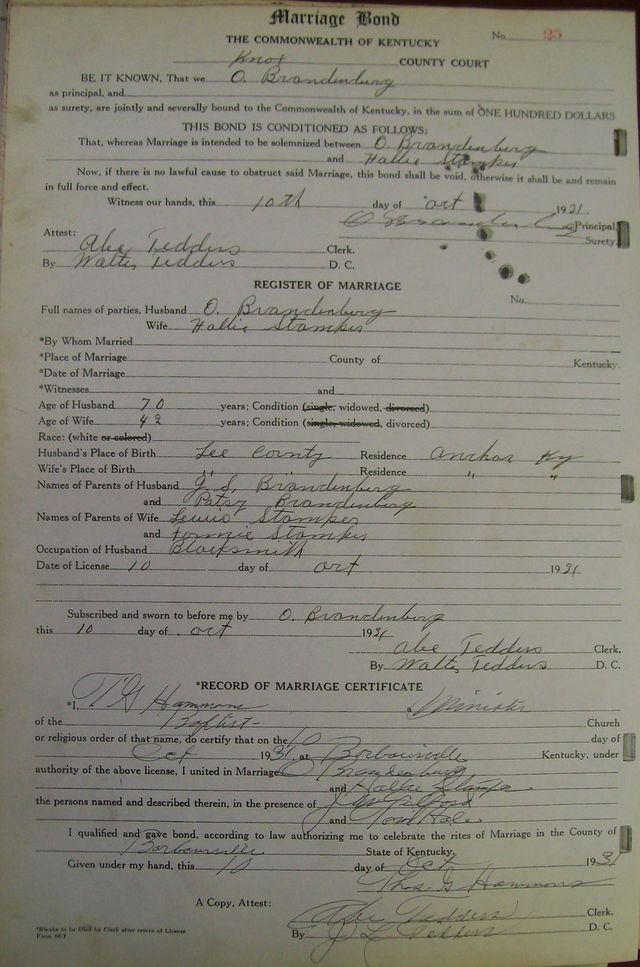 Marriage Bond
No. 25
THE COMMONWEALTH OF KENTUCKY
Knox COUNTY COURT
BE IT KNOWN, That we O. Brandenburg
as principal, and
as surety, are jointly and severally bound to the Commonwealth of Kentucky, in the sum of ONE HUNDRED DOLLARS
THIS BOND IS CONDITIONED AS FOLLOWS:
That, whereas Marriage is intended to be solemnized between O. Brandenburg
and Hallie Stamper
Now, if there is no lawful cause to obstruct said Marriage, this bond shall be void, otherwise it shall be and remain
in full force and effect.
Witness our hands, this 10th day of oct 1931
O Brandenburg Principal
Surety
Attest:
Abe Tedders Clerk.
By Walter Tedders D. C.
REGISTER OF MARRIAGE
No.
Full names of parties, Husband O. Brandenburg
Wife Hallie Stamper
*By Whom Married
*Place of Marriage County of Kentucky
*Date of Marriage
*Witnesses and
Age of Husband 70 years; Condition (single, widowed, divorced)
Age of Wife 42 years; Condition (single, widowed, divorced)
Race: (white or colored)
Husband's Place of Birth Lee County Residence Anchor Ky
Wife's Place of Birth " " Residence " "
Names of Parents of Husband J. S. Brandenburg
and Patsy Brandenburg
Names of Parents of Wife Lewis Stamper
and Stamper
Occupation of Husband Blacksmith
Date of License 10 day of oct 1931
Subscribed and sworn to before me by O. Brandenburg
this 10 day of oct 1931
Abe Tedders Clerk.
By Walter Tedders D. C.
*RECORD OF MARRIAGE CERTIFICATE
*I, T G Hammons a Minister
of the Baptist Church
or religious order of that name, do certify that on the 10 day of
Oct 1931, at Barbourville Kentucky, under
authority of the above license, I united in Marriage O Brandenburg
and Hallie Stamper
the persons named and described therein, in the presence of J. W.
and Tom Hale
I qualified and gave bond, according to law authorizing me to celebrate the rites of Marriage in the County of
Barbourville State of Kentucky.
Given under my hand, this 10 day of Oct 1931
Thos G Hammons
A Copy, Attest: Abe Tedders Clerk.
By J L Tedders D. C.
*Blanks to be filled by Clerk after return of License
Form 64-7